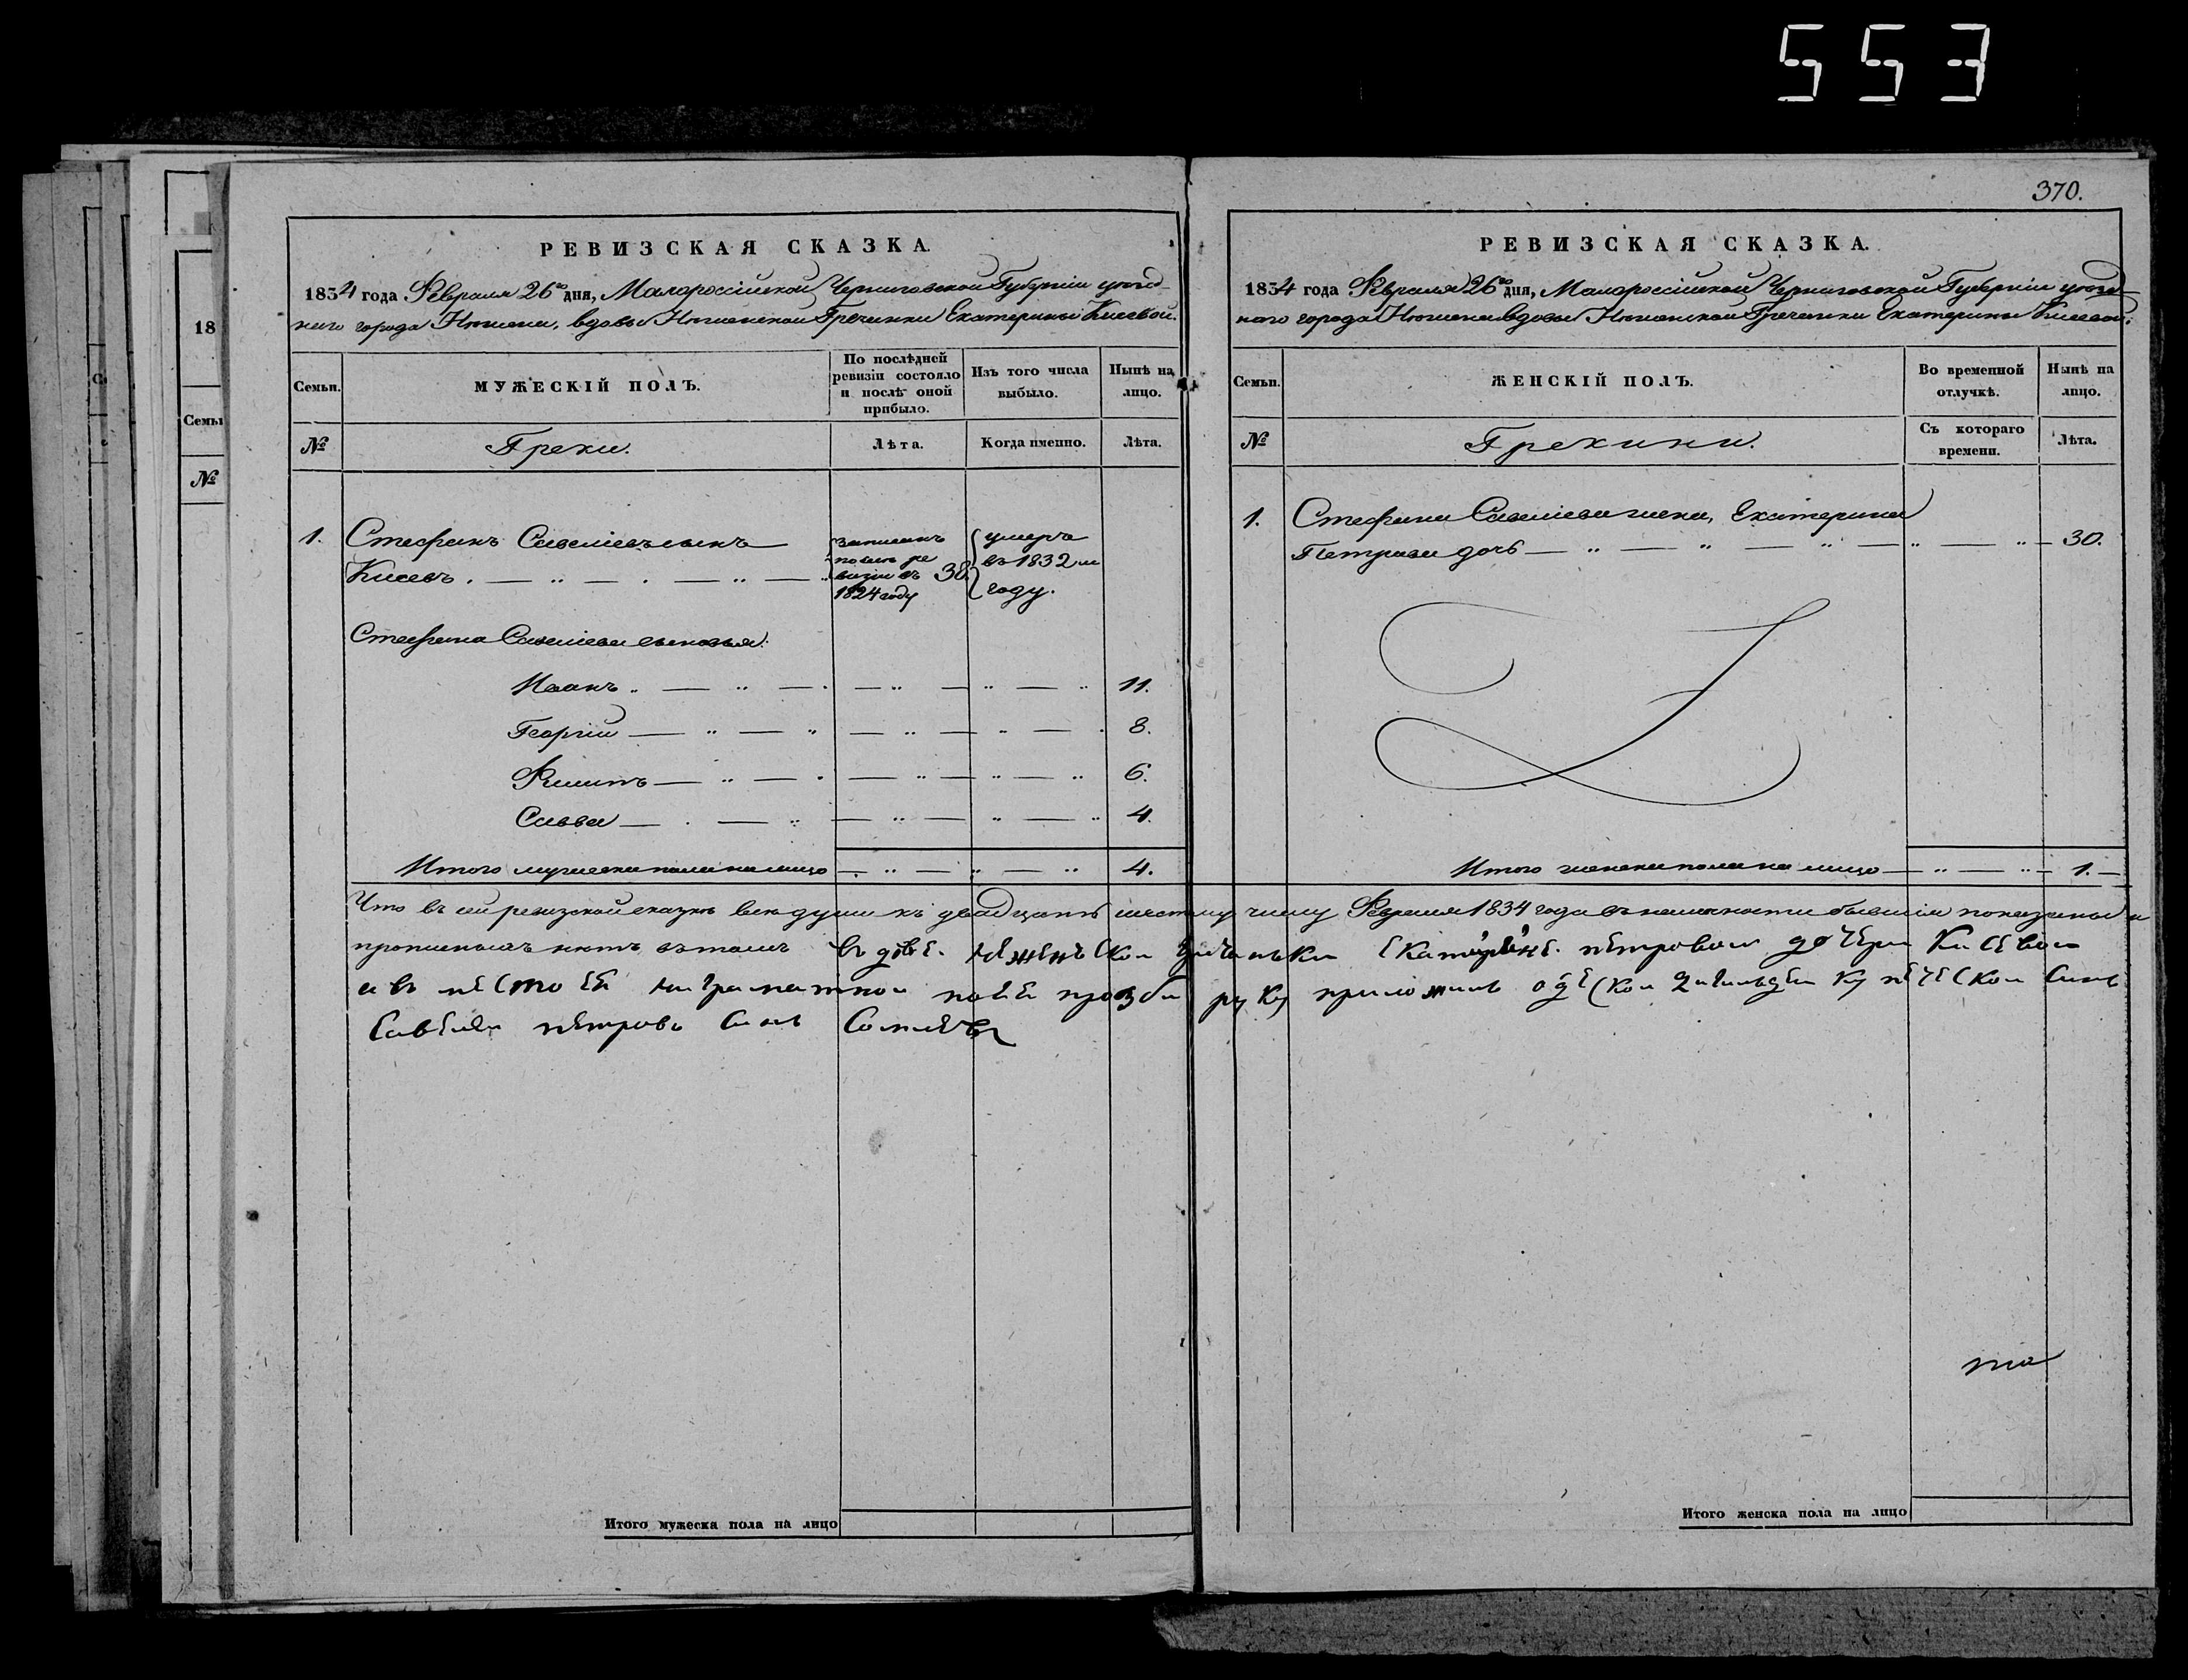 553
370.
РЕВИЗСКАЯ СКАЗКА.
1834 года Февраля 26го дня, Малороссійской Черниговской Губерніи уѣзд-
наго города Нѣжина, вдовы Нѣжинской Гречанки Екатерины Кисевой.
Семьи. МУЖЕСКІЙ ПОЛЪ. По послѣдней ревизіи состояло и послѣ оной прибыло. Изъ того числа выбыло. Нынѣ на лицо.
№ Греки. Лѣта. Когда именно. Лѣта.
1. Стефанъ Савеліевъ сынъ
Кисевъ. записанъ по ревизіи въ 1824 году 38. умеръ въ 1832м году.
Стефана Савеліева сыновья:
Иванъ 11.
Георгій 8.
Филипъ 6.
Савва 4.
Итого мужеска пола на лицо 4.
РЕВИЗСКАЯ СКАЗКА.
1834 года Февраля 26го дня, Малороссійской Черниговской Губерніи уѣзд-
наго города Нѣжина вдовы Нѣжинской Гречанки Екатерины Кисевой.
Семьи. ЖЕНСКІЙ ПОЛЪ. Во временной отлучкѣ. Нынѣ на лицо.
№ Грекини. Съ котораго времени. Лѣта.
1. Стефана Савеліева жена, Екатерина
Петрова дочь 30.
Итого женска пола на лицо 1.
Что въ сей ревизской сказкѣ всѣ души къ двадцать шестому числу Февраля 1834 года въ наличности бывшія показаны и
прописныхъ нѣтъ въ томъ вдове неженской гречанки екатерине петровои дочери Кисевои
а вместо еи ниграматнои по еи прозби руку приложилъ одеской купеческои Синъ
Савелеи петровъ Синъ
Итого мужеска пола на лицо
Итого женска пола на лицо
18
Семьи
№